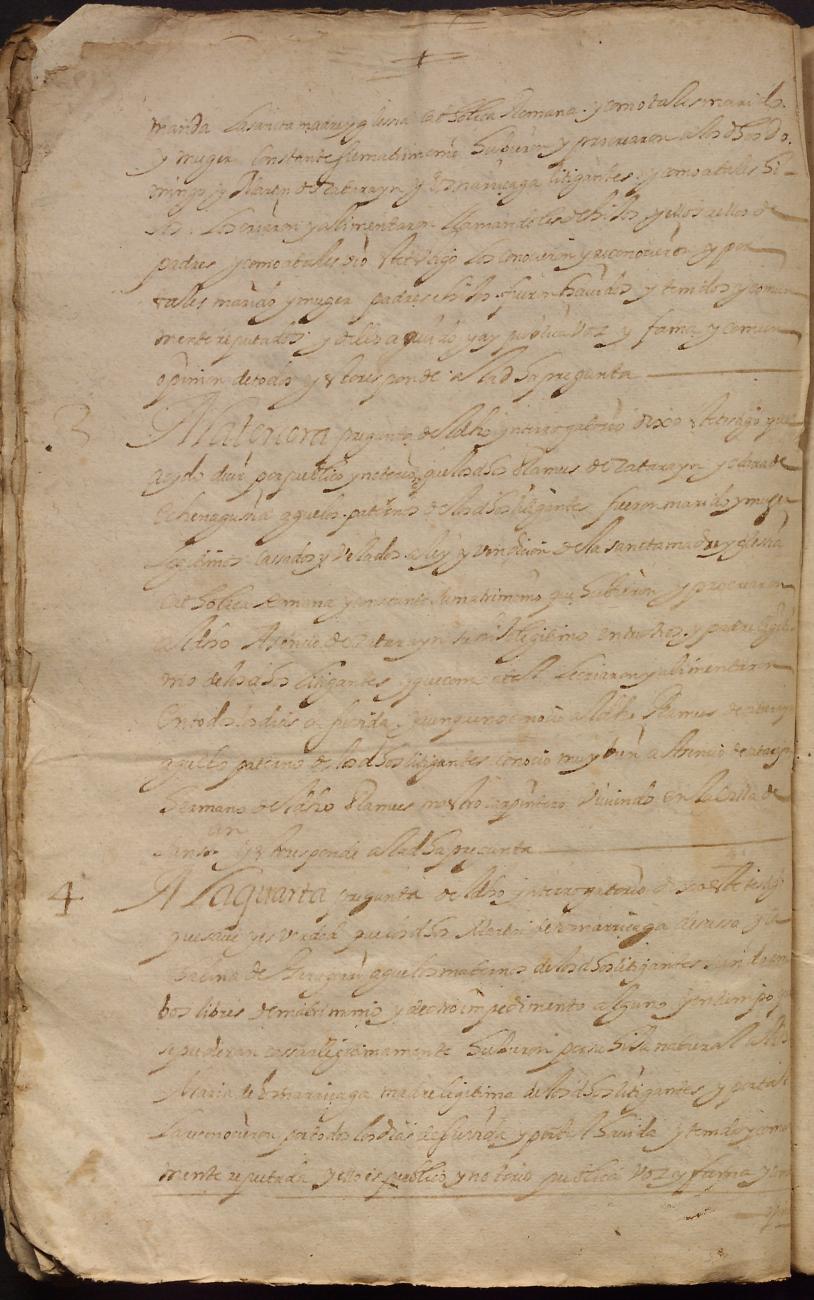 manda la sancta madre yglesia catholica Romana. y como tales marido
y muger constante su matrimonio hubieron y procrearon a los dhos Do-
mingo, y Martin de Çatarayn y litigantes. y como a tales hi-
jos los criaron y alimentaron llamandoles de hijos y ellos a ellos de
padres y como a tales vio este testigo los conocieron y reconocieron y por
tales marido y muger padres e hijos fueron havidos y tenidos y comun
mente reputados y dello a avido y ay publica voz y fama y comun
opinion de todos y esto responde a la dha pregunta
3 A la tercera pregunta del dho ynterrogatorio dixo este testigo que
oydo decir por publico y notorio que los dhos Ramus de Çatarayn y
aguelos paternos de los dhos litigantes fueron marido y muger
legitimos cassados y velados a ley y vendicion de la sancta madre yglesia
catholica Romana y constante su matrimonio que hubieron y procrearon
al dho Asencio de Çatarayn su hijo legitimo entre otros y padre legiti
mo de los dhos litigantes y que como a tal le criaron y alimentaron
en todos los dias de su vida y aunque no conocio al dho Ramus de
aguelo paterno de los dhos litigantes conocio muy bien a Asencio de
hermano del dho Ramus maestro carpintero viviendo en la villa de
y esto responde a la dha pregunta
4 A la quarta pregunta del dho ynterrogatorio dixo este testigo
que save y es verdad que los dhos Martin de
de aguelos maternos de los dhos litigantes siendo am
bos libres de matrimonio y de otro impedimento alguno y en tiempo que
se pudieran cassar legitimamente hubieron por su hija natural a la dha
Maria de madre legitima de los dhos litigantes y por tal
la reconocieron por todos los dias de su vida y por tal havida y tenida y comun
mente reputada y ello es publico y notorio publica voz y fama y